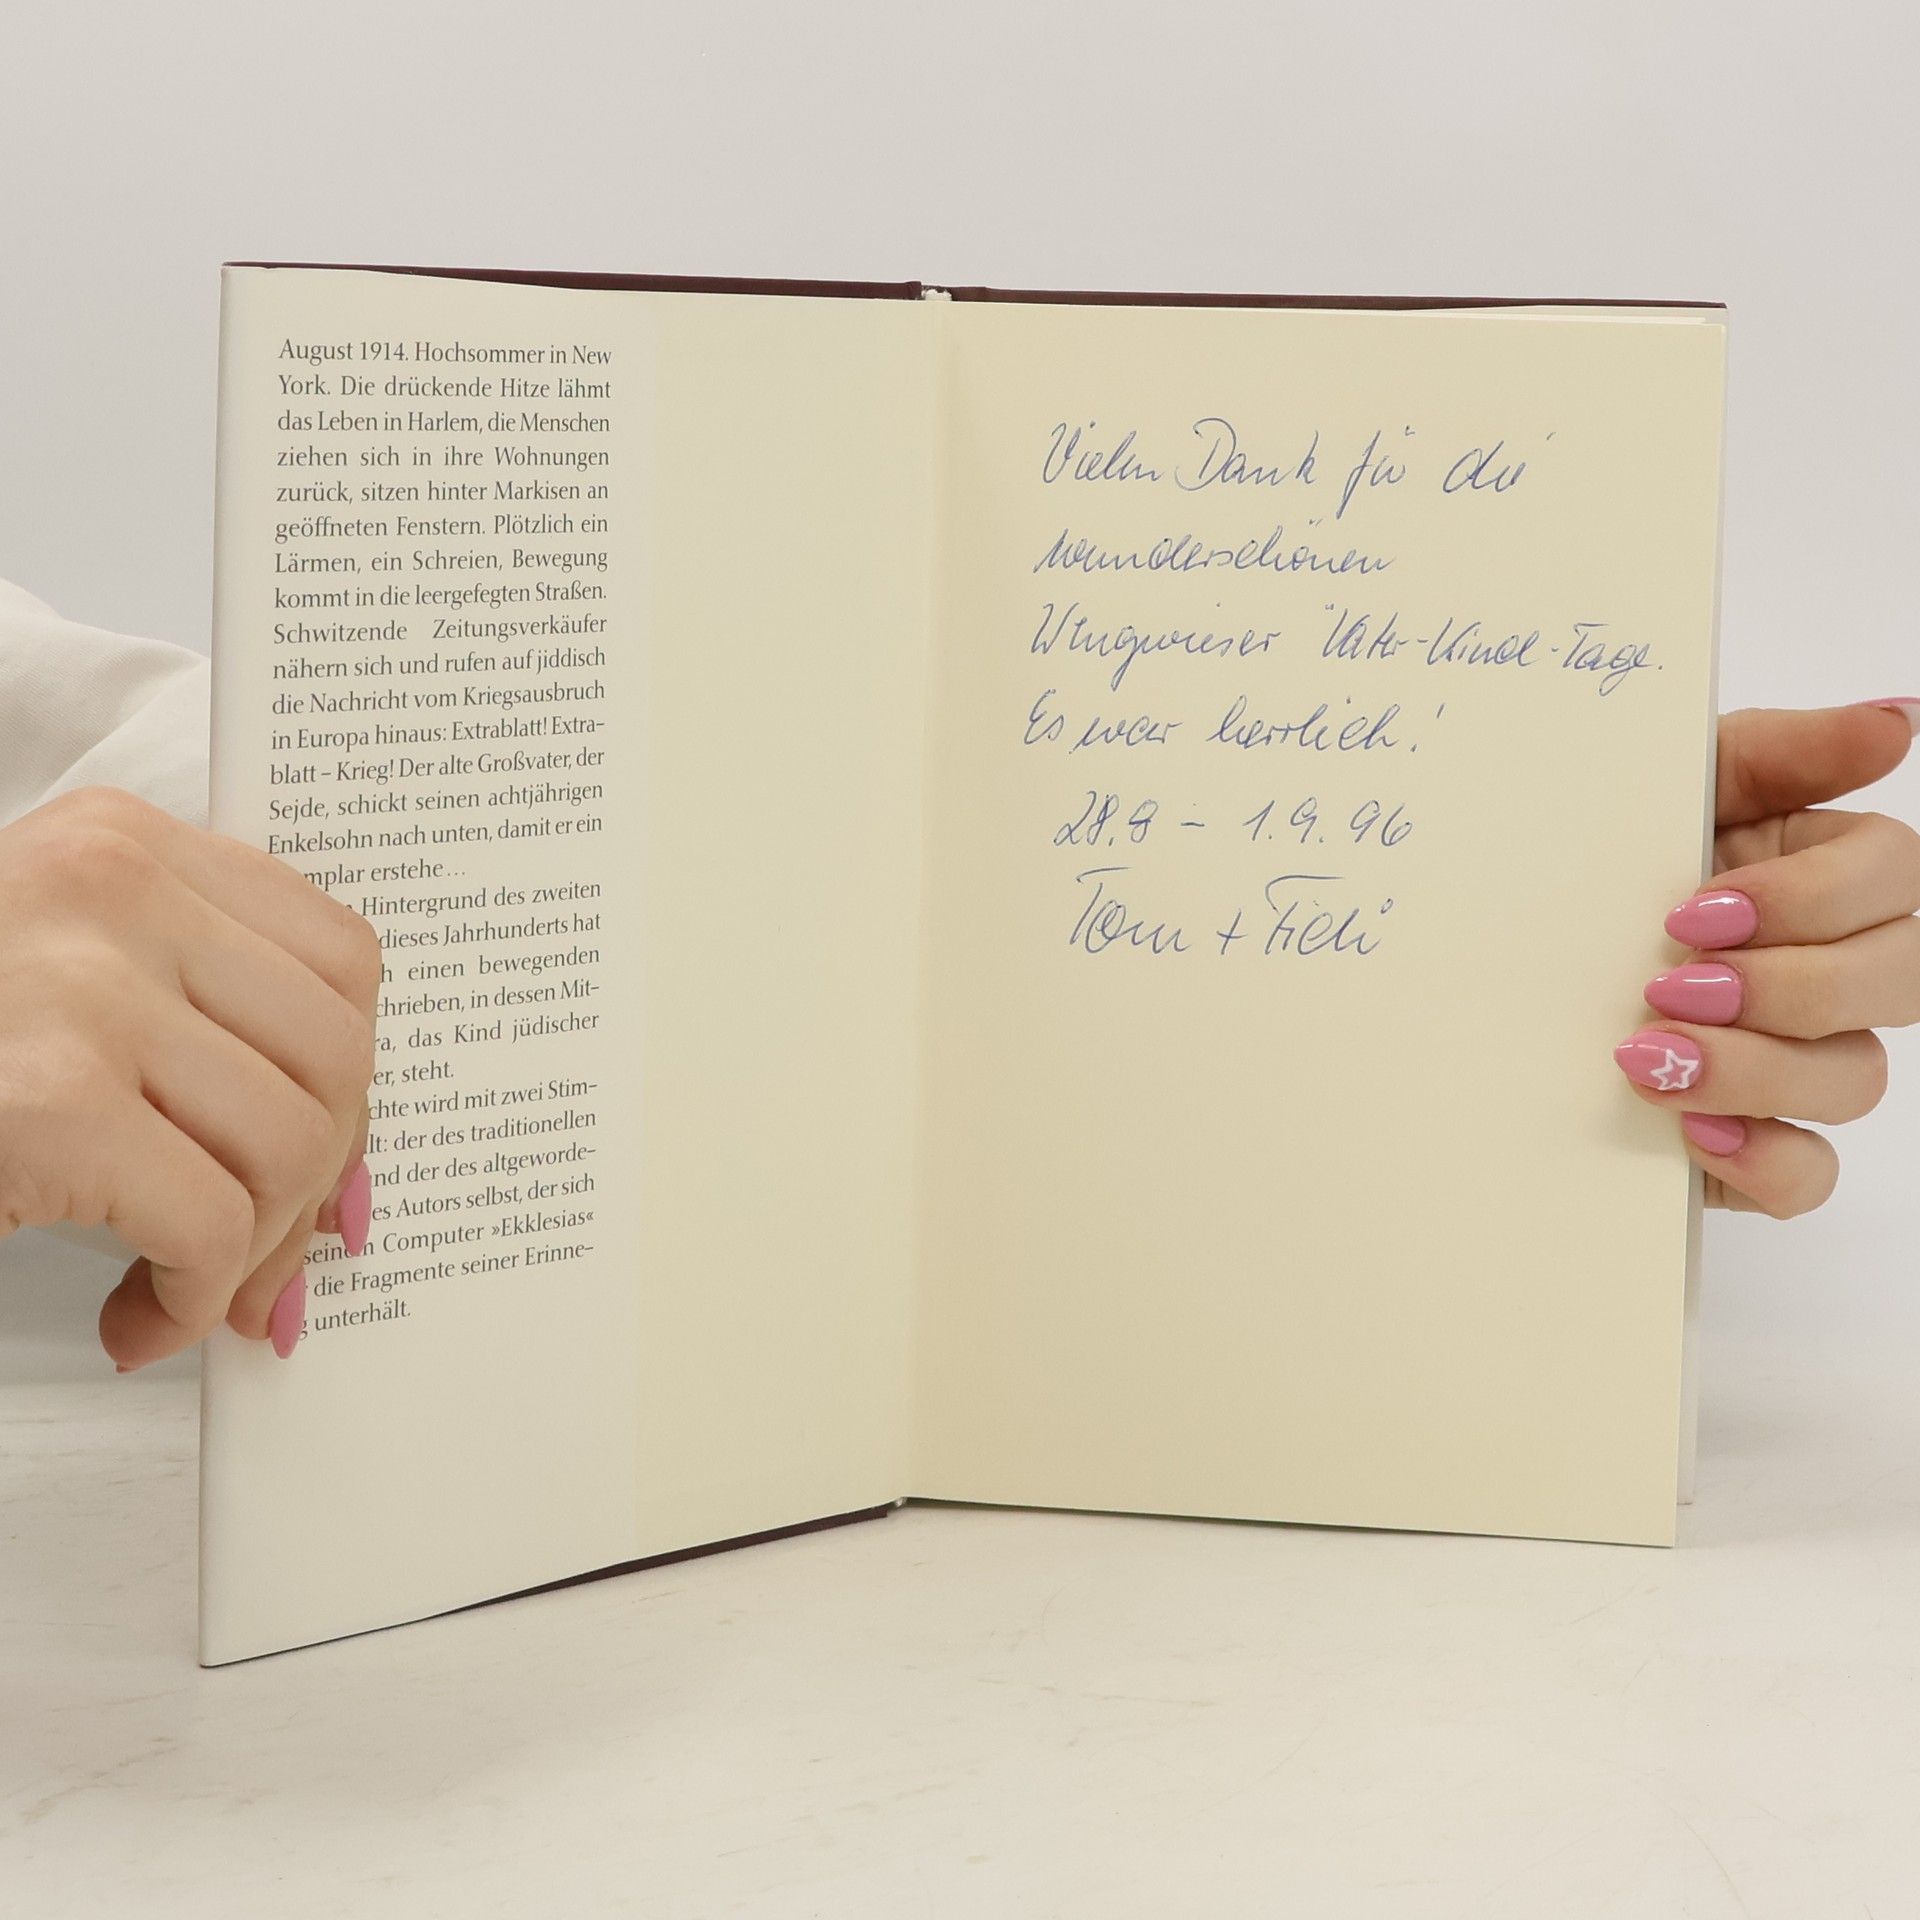 August 1914. Hochsommer in New
York. Die drückende Hitze lähmt
das Leben in Harlem, die Menschen
ziehen sich in ihre Wohnungen
zurück, sitzen hinter Markisen an
geöffneten Fenstern. Plötzlich ein
Lärmen, ein Schreien, Bewegung
kommt in die leergefegten Straßen.
Schwitzende Zeitungsverkäufer
nähern sich und rufen auf jiddisch
die Nachricht vom Kriegsausbruch
in Europa hinaus: Extrablatt! Extra-
blatt – Krieg! Der alte Großvater, der
Sejde, schickt seinen achtjährigen
Enkelsohn nach unten, damit er ein
mplar erstehe...
Hintergrund des zweiten
dieses Jahrhunderts hat
h einen bewegenden
chrieben, in dessen Mit-
ra, das Kind jüdischer
er, steht.
chte wird mit zwei Stim-
lt: der des traditionellen
nd der des altgeworde-
es Autors selbst, der sich
seinem Computer »Ekklesias«
die Fragmente seiner Erinne-
g unterhält.
Vielen Dank für die
wunderschönen
Väter-Kind-Tage.
Es war herrlich!
28.8 – 1.9.96
Tom +